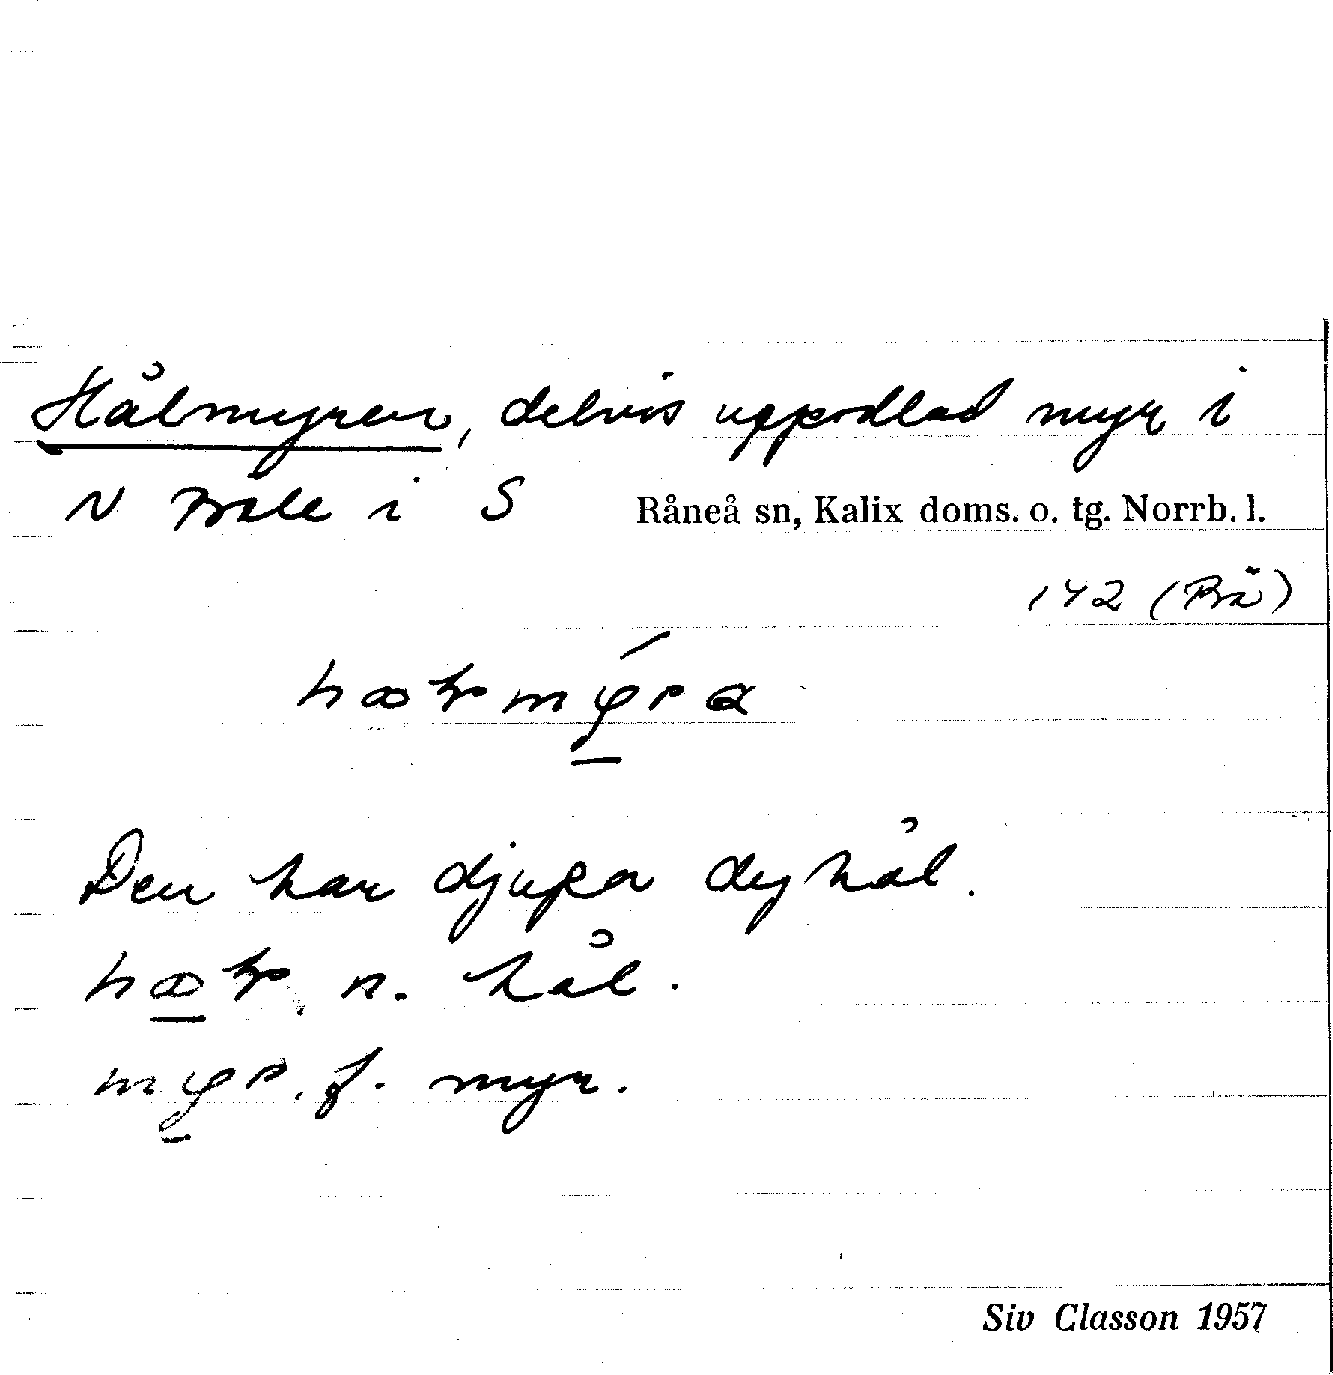 Hålmyren, delvis uppodlad myr i
N Prole i S Råneå sn, Kalix doms. o. tg. Norrb. l.
142 (Prä)
Den har djupa dyhål.
n. hål.
f. myr.
Siv Classon 1957